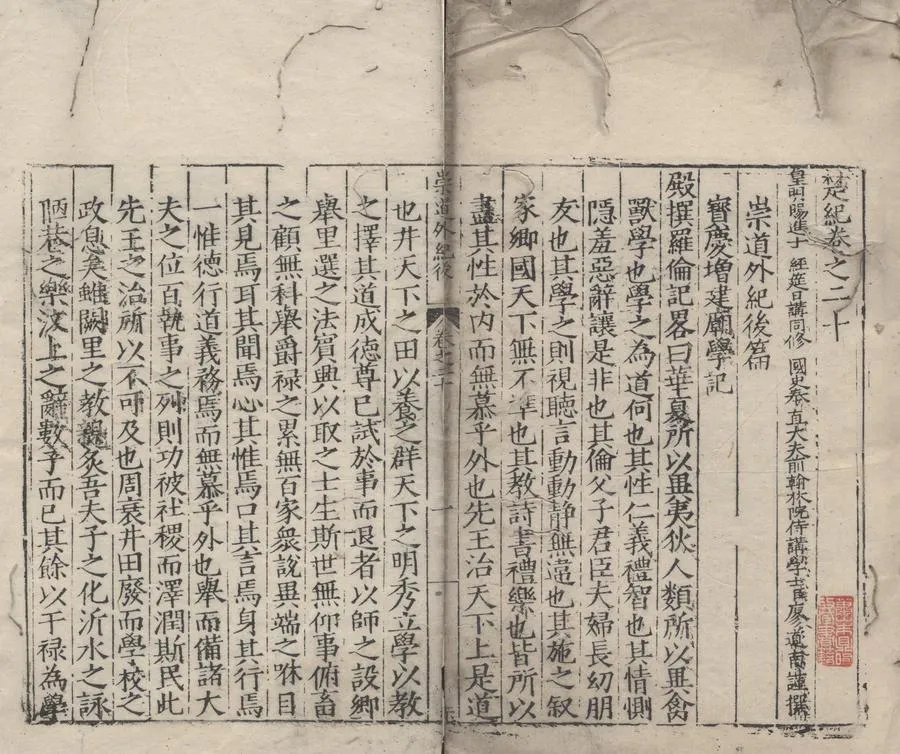 楚紀卷之二十
皇明賜進士 經筵日講同修 國史奉直大夫前翰林院侍講學士臣廖道南謹撰
崇道外紀後篇
寶慶増建廟學記
殿撰羅倫記畧曰華夏所以異夷狄人類所以異禽
獸學也學之為道何也其性仁義禮智也其情惻
隱羞惡辭讓是非也其倫父子君臣夫婦長幼朋
友也其學之則視聽言動動靜無違也其施之叙
家鄉國天下無不準也其教詩書禮樂也皆所以
盡其性於内而無慕乎外也先王治天下上是道
崇道外紀後 卷之二十 一
也井天下之田以養之群天下之明秀立學以教
之擇其道成德尊已試於事而退者以師之設鄉
舉里選之法賔興以取之士生斯世無仰事俯畜
之顧無科舉爵禄之累無百家衆説異端之咻目
其見焉耳其聞焉心其惟焉口其言焉身其行焉
一惟德行道義務焉而無慕乎外也舉而備諸大
夫之位百執事之列則功被社稷而澤潤斯民此
先王之治所以不可及也周衰井田廢而學校之
政息矣雖闕里之教親炙吾夫子之化沂水之詠
陋巷之樂汶上之辭數子而已其餘以干禄為學